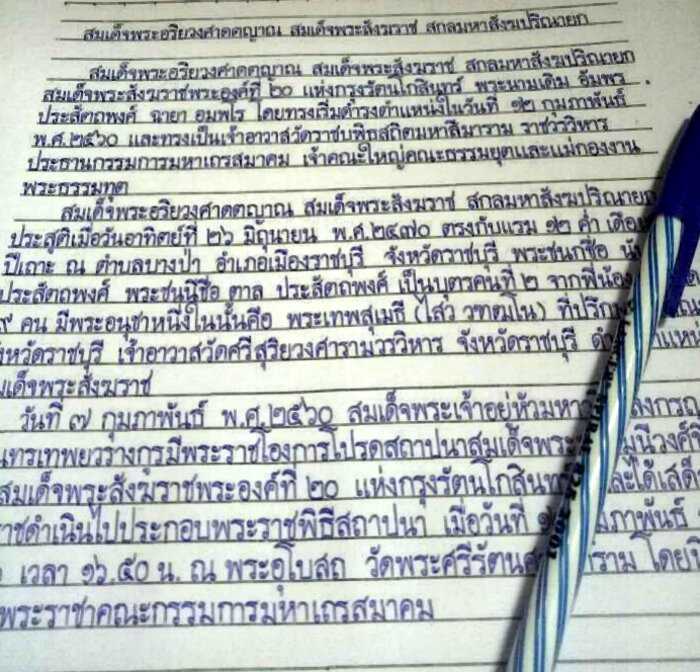 สมเด็จพระอริยวงศาคตญาณ สมเด็จพระสังฆราช สกลมหาสังฆปริณายก
สมเด็จพระอริยวงศาคตญาณ สมเด็จพระสังฆราช สกลมหาสังฆปริณายก
สมเด็จพระสังฆราชพระองค์ที่ ๒๐ แห่งกรุงรัตนโกสินทร์ พระนามเดิม อัมพร
ประสัตถพงศ์ ฉายา อมฺพโร โดยทรงเริ่มดำรงตำแหน่งในวันที่ ๑๒ กุมภาพันธ์
พ.ศ.๒๕๖๐ และทรงเป็นเจ้าอาวาสวัดราชบพิธสถิตมหาสีมาราม ราชวรวิหาร
ประธานกรรมการมหาเถรสมาคม เจ้าคณะใหญ่คณะธรรมยุตและแม่กองงาน
พระธรรมทูต
สมเด็จพระอริยวงศาคตญาณ สมเด็จพระสังฆราช สกลมหาสังฆปริณายก
ประสูติเมื่อวันอาทิตย์ที่ ๒๖ มิถุนายน พ.ศ.๒๔๗๐ ตรงกับแรม ๑๒ ค่ำ เดือน
ปีเถาะ ณ ตำบลบางป่า อำเภอเมืองราชบุรี จังหวัดราชบุรี พระชนกชื่อ
ประสัตถพงศ์ พระชนนีชื่อ ตาล ประสัตถพงศ์ เป็นบุตรคนที่ ๒ จากพี่น้อง
๙ คน มีพระอนุชาหนึ่งในนั้นคือ พระเทพสุเมธี (ไสว วฑฺฒโน) ที่ปรึกษา
งหวัดราชบุรี เจ้าอาวาสวัดศรีสุริยวงศารามวรวิหาร จังหวัดราชบุรี
มเด็จพระสังฆราช
วันที่ ๗ กุมภาพันธ์ พ.ศ.๒๕๖๐ สมเด็จพระเจ้าอยู่หัวมหา ลงกรณ
นทรเทพยวรางกูรมีพระราชโองการโปรดสถาปนาสมเด็จพระ มุนีวงศ์
สมเด็จพระสังฆราชพระองค์ที่ ๒๐ แห่งกรุงรัตนโกสินท ละได้เสด็จ
ราชดำเนินไปประกอบพระราชพิธีสถาปนา เมื่อวันที่ ภาพันธ์
เวลา ๑๖.๕๐ น. ณ พระอุโบสถ วัดพระศรีรัตน ราม โดย
พระราชาคณะกรรมการมหาเถรสมาคม